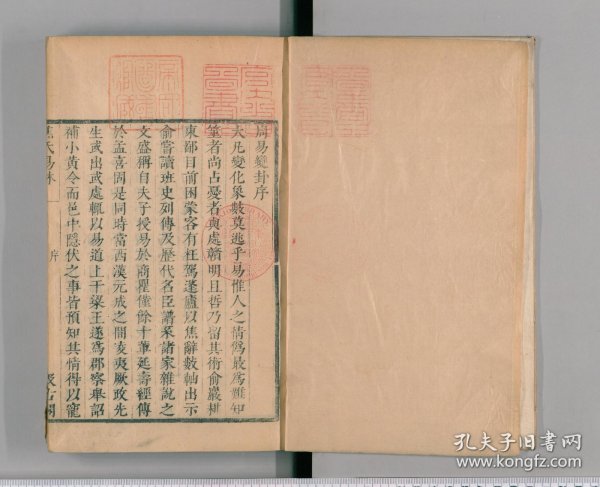 周易變卦序
大凡變化象數莫逃乎易惟人之情爲最爲難知
筮者尚占憂者與處贊明且哲乃留其術俞巖耕
東鄙目前困蒙客有枉駕蓬廬以焦辭數軸出示
俞嘗讀班史列傳及歷代名臣譜系諸家雜說之
文盛稱自夫子授易於商瞿僅餘十輩延壽經傳
於孟喜固是同時當西漢元成之間凌夷厥政先
生或出或處輒以易道上干梁王遂爲郡察舉詔
補小黃令而邑中隱伏之事皆預知其情得以寵
焦氏易林
序
汲古閣
孔夫子旧书网
www.kongfz.com